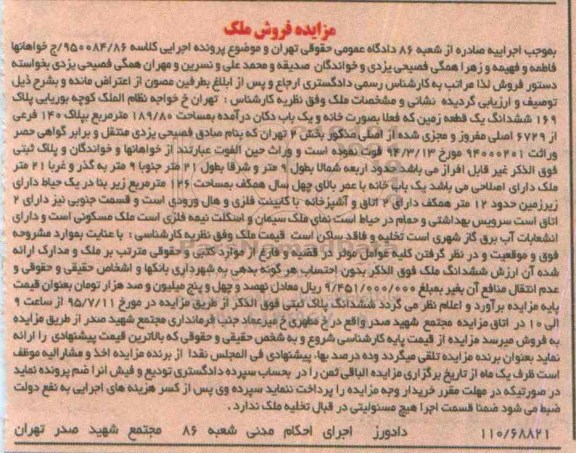 مزایده فروش ملک
بموجب اجراییه صادره از شعبه ۸۶ دادگاه عمومی حقوقی تهران و موضوع پرونده اجرایی کلاسه ۹۵۰۰۸۴/۸۶/ج خواهانها
فاطمه و فهیمه و زهرا همگی فصیحی یزدی و خواندگان صدیقه و محمد علی و نسرین و مهران همگی فصیحی یزدی بخواسته
دستور فروش لذا مراتب به کارشناس رسمی دادگستری ارجاع و پس از ابلاغ بطرفین مصون از اعتراض مانده و بشرح ذیل
توصیف و ارزیابی گردیده نشانی و مشخصات ملک وفق نظریه کارشناس : تهران خ خواجه نظام الملک کوچه بوریایی پلاک
۱۶۹ ششدانگ یک قطعه زمین که فعلا بصورت خانه و یک باب دکان درآمده بمساحت ۱۸۹/۸۰ مترمربع بپلاک ۱۴۰ فرعی
از ۶۷۲۹ اصلی مفروز و مجزی شده از اصلی مذکور بخش ۲ تهران که بنام صادق فصیحی یزدی منتقل و برابر گواهی حصر
وراثت ۹۴۰۰۰۲۰۱ مورخ ۹۴/۳/۱۳ فوت نموده است و وراث حین الفوت عبارتند از خواهانها و خواندگان و پلاک ثبتی
فوق الذکر غیر قابل افراز می باشد حدود اربعه شمالا بطول ۹ متر و شرقا بطول ۲۱ متر جنوبا ۹ متر به گذر و غربا ۲۱ متر
ملک دارای اصلاحی می باشد یک باب خانه با عمر بالای چهل سال همکف بمساحت ۱۲۶ مترمربع زیر بنا در یک حیاط دارای
زیرزمین حدود ۱۲ متر همکف دارای ۲ اتاق و آشپزخانه با کابینت فلزی و هال ورودی است و قسمت جنوبی نیز دارای ۲
اتاق است سرویس بهداشتی و حمام در حیاط است نمای ملک سیمان و اسکلت نیمه فلزی است ملک مسکونی است و دارای
انشعابات آب برق گاز شهری است تخلیه و فاقد ساکن است قیمت ملک وفق نظریه کارشناسی : با عنایت بموارد مشروحه
فوق و موقعیت و در نظر گرفتن کلیه عوامل موثر در قضیه و فارغ از موارد کتبی و حقوقی مترتب بر ملک و مدارک ارائه
شده آن ارزش ششدانگ ملک فوق الذکر بدون احتساب هر گونه بدهی به شهرداری بانکها و اشخاص حقیقی و حقوقی و
عدم انتقال منافع آن بغیر بمبلغ ۹/۴۵۱/۰۰۰/۰۰۰ ریال معادل نهصد و چهل و پنج میلیون و صد هزار تومان بعنوان قیمت
پایه مزایده برآورد و اعلام نظر می گردد ششدانگ پلاک ثبتی فوق الذکر از طریق مزایده در مورخ ۹۵/۷/۱۱ از ساعت ۹
الی ۱۰ در اتاق مزایده مجتمع شهید صدر واقع در خ مطهری خ میرعماد جنب فرمانداری مجتمع شهید صدر از طریق مزایده
به فروش میرسد مزایده از قیمت پایه کارشناسی شروع و به شخص حقیقی و حقوقی که بالاترین قیمت پیشنهادی را ارائه
نماید بعنوان برنده مزایده تلقی میگردد وده درصد بها، پیشنهادی فی المجلس نقدا از برنده مزایده اخذ و مشارالیه موظف
است ظرف یک ماه از تاریخ برگزاری مزایده الباقی ثمن را در بحساب سپرده دادگستری تودیع و فیش انرا ضم پرونده نماید
در صورتیکه در مهلت مقرر خریدار وجه مزایده را پرداخت ننماید سپرده وی پس از کسر هزینه های اجرایی به نفع دولت
ضبط می شود ضمنا قسمت اجرا هیچ مسئولیتی در قبال تخلیه ملک ندارد .
۱۱۰/۶۸۸۲۱ دادورز اجرای احکام مدنی شعبه ۸۶ مجتمع شهید صدر تهران